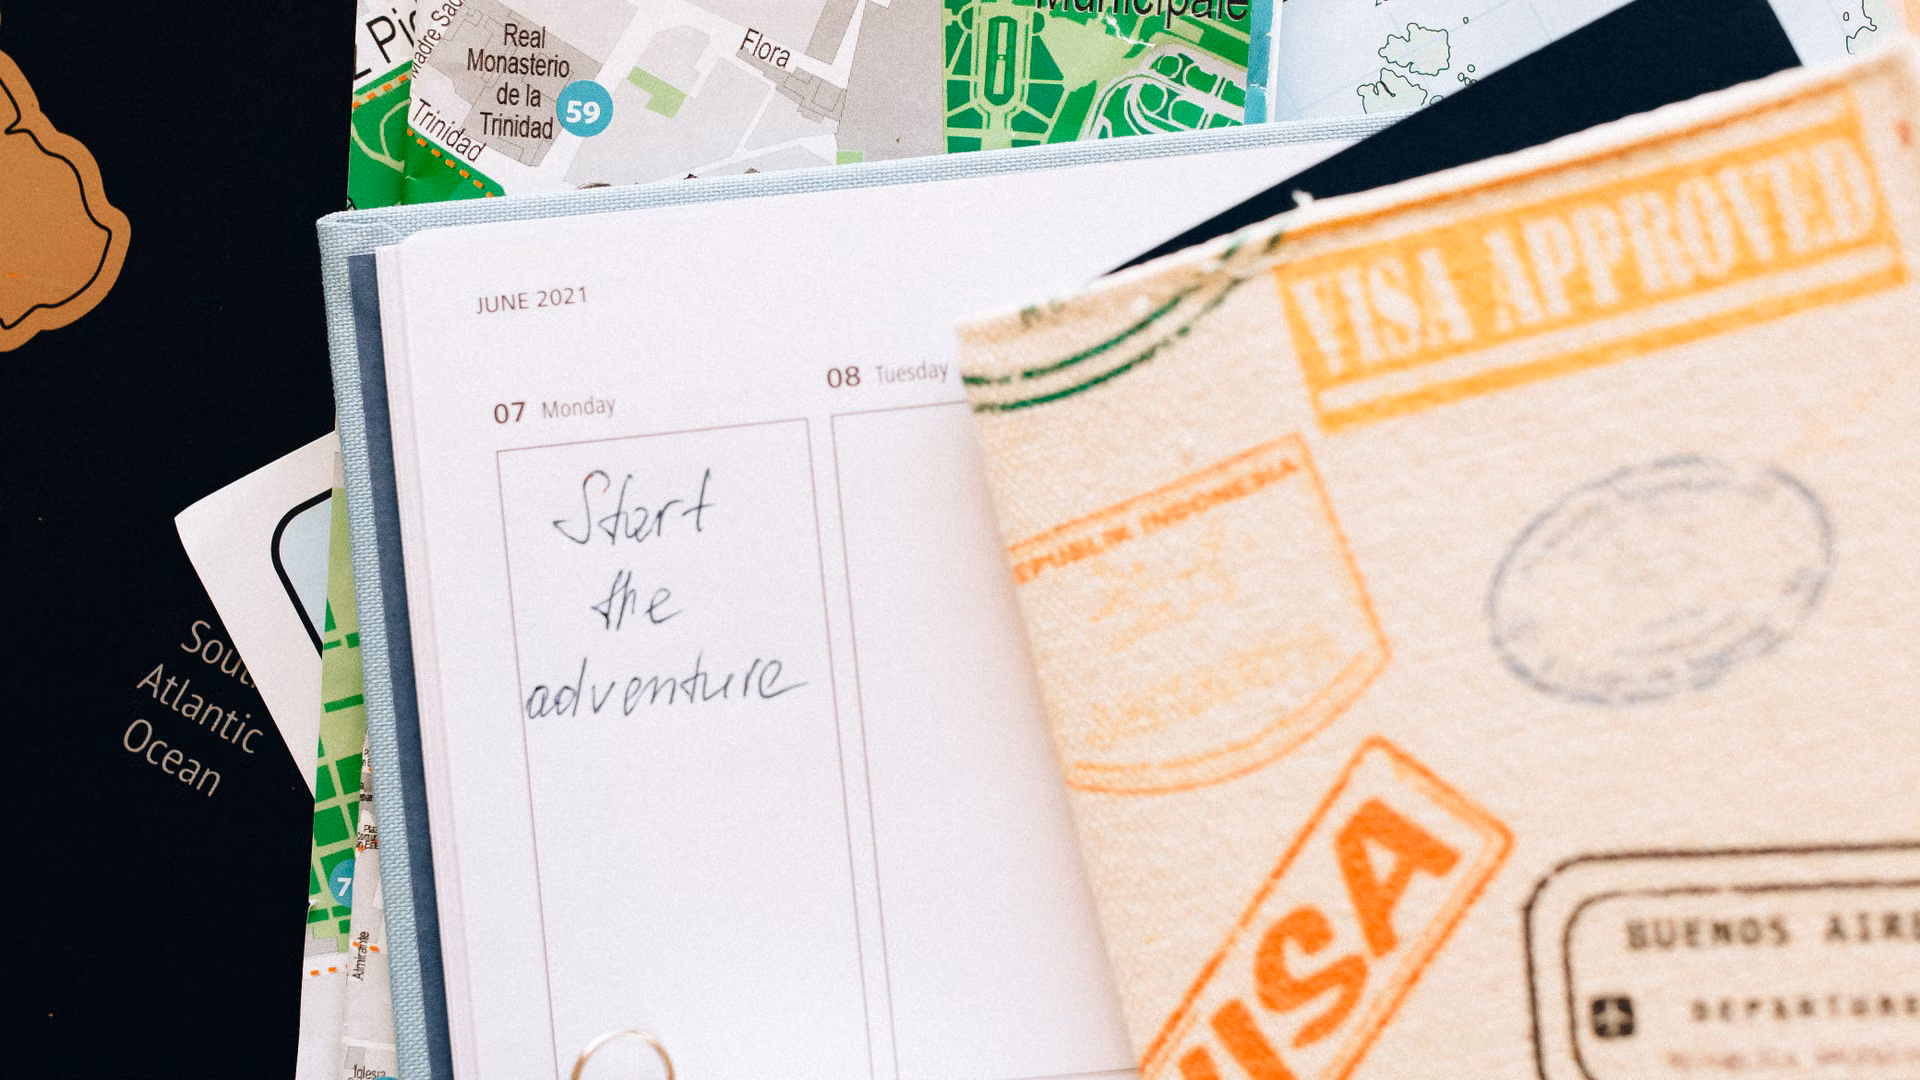 Municipale
Real
Monasterio
de la
Trinidad
59
Flora
Trinidad
JUNE 2021
07 Monday
08 Tuesday
Start
the
adventure
VISA APPROVED
EPUBLIK INDONESIA
VISA
BUENOS AIRE
DEPARTURE
Atlantic
Ocean
7
Almirante
Iglesia